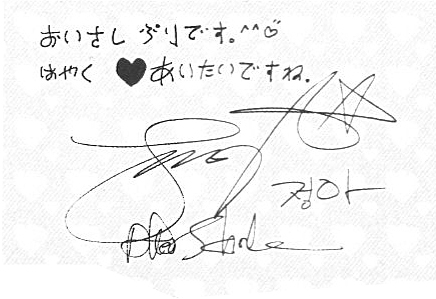 おいさし ぶりです。^^♡
はやく ♥あいたいですね.
정아